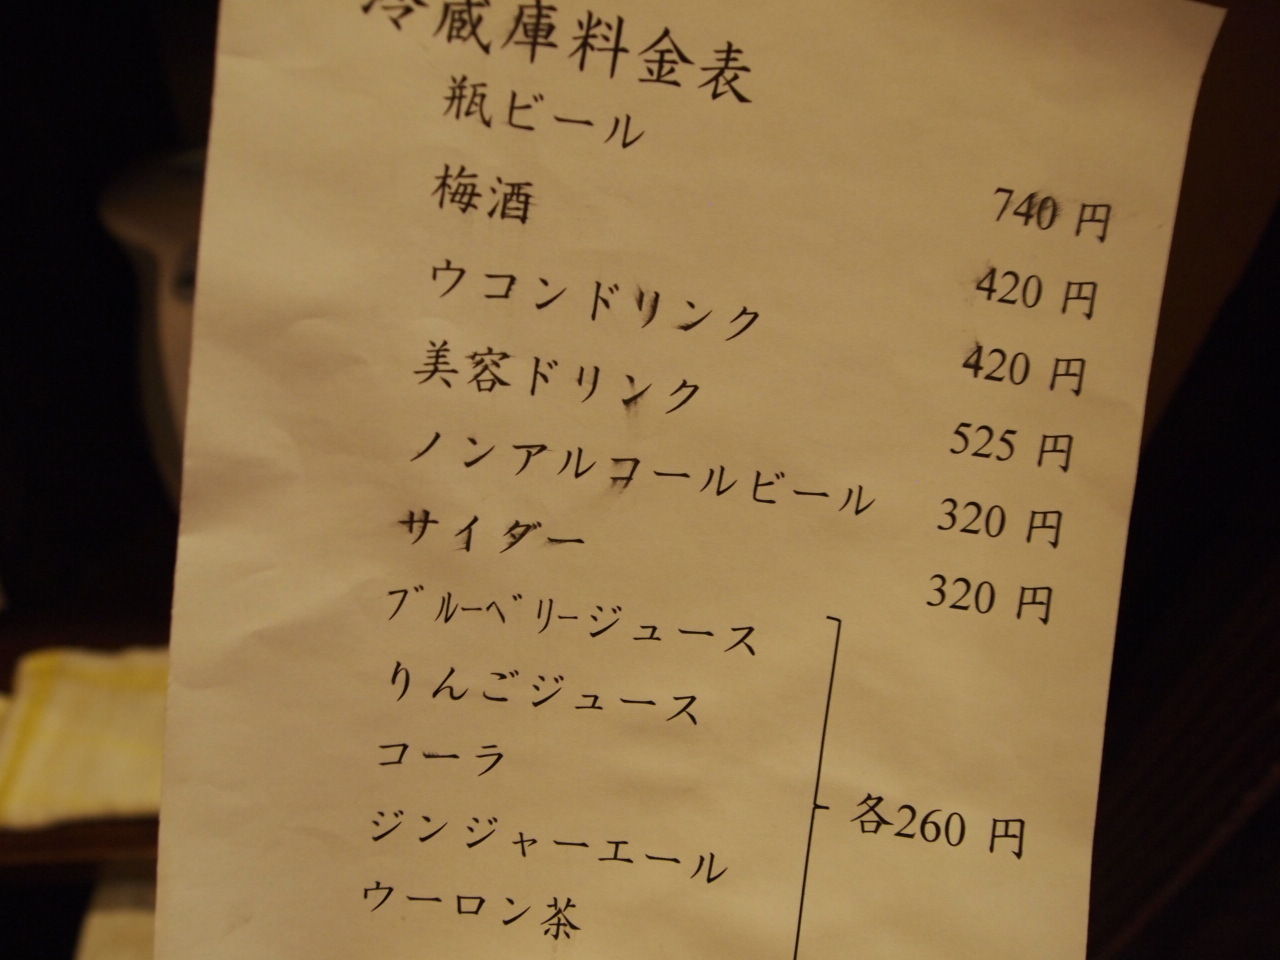 冷蔵庫料金表
瓶ビール 740 円
梅酒 420 円
ウコンドリンク 420 円
美容ドリンク 525 円
ノンアルコールビール 320 円
サイダー 320 円
ブルーベリージュース
りんごジュース
コーラ
各260 円
ジンジャーエール
ウーロン茶